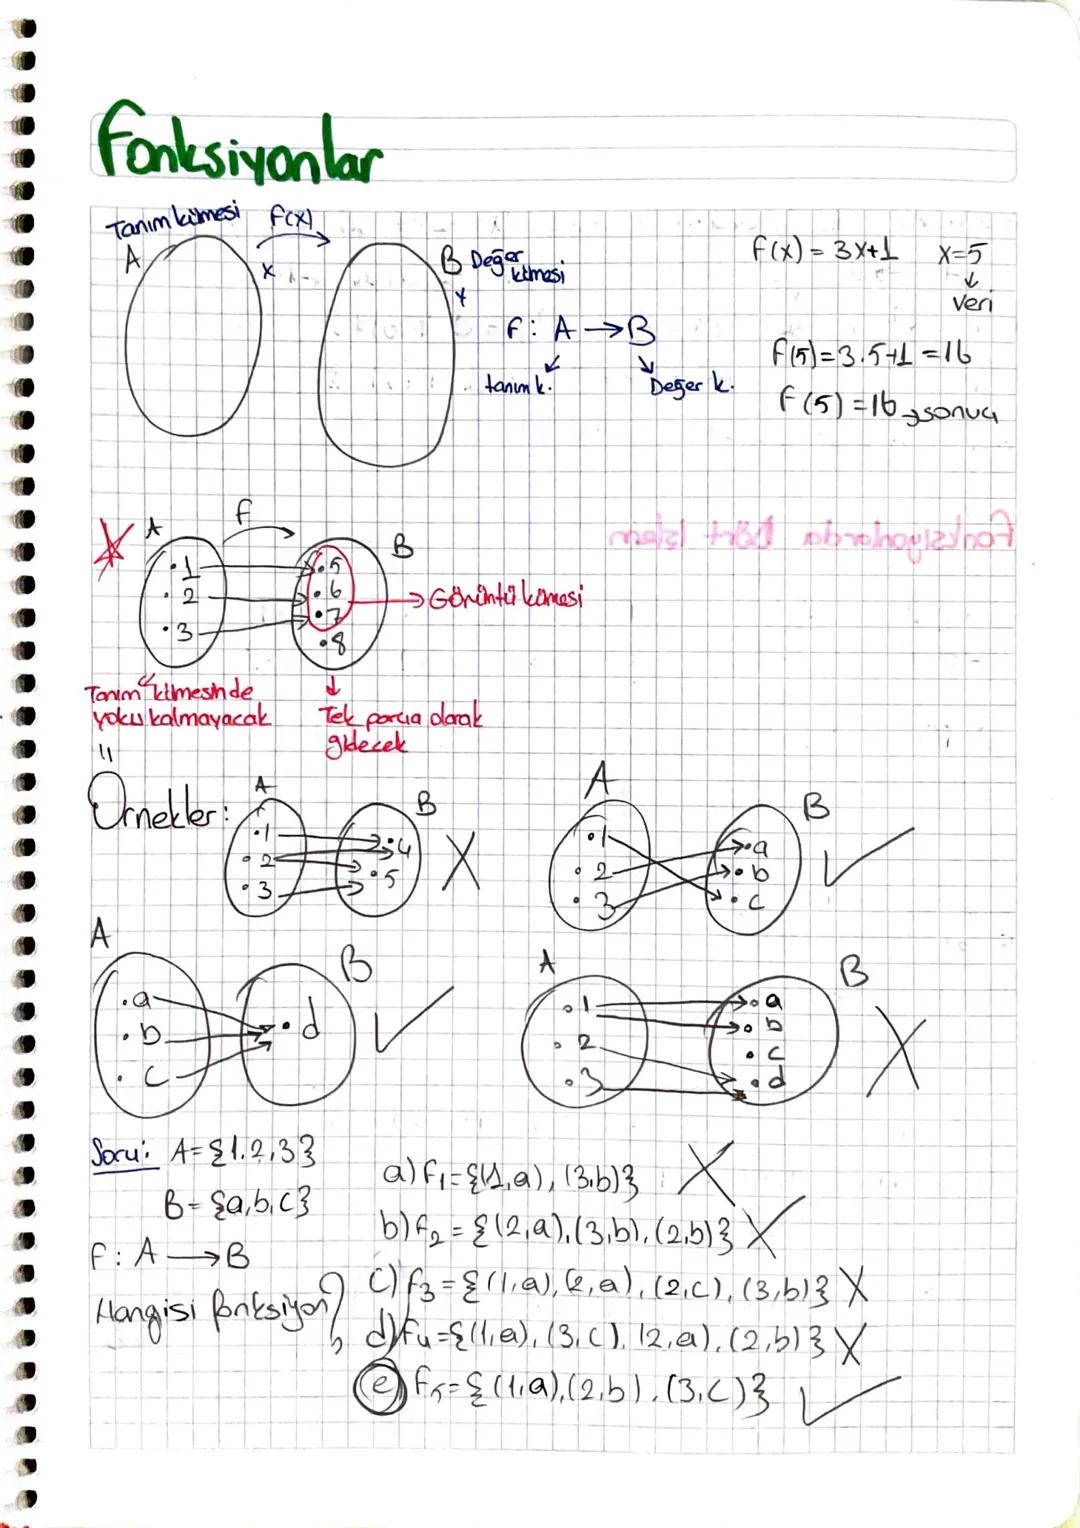 Fonksiyonlar
Tanım kümesi f(x)
A x B Değer kümesi
f: A → B
tanım k. Değer k.
f(x) = 3x+1 x=5
↓
veri
f(5)=3.5+1=16
f(5)=16 → sonuç
Fonksiyonlarda Dört İşlem
A f B
.1 .5
.2 .6
.3 .7
.8
→ Görüntü kümesi
Tanım kümesinde
yoku kalmayacak
Tek parça olarak
gidecek
Örnekler:
A B
.1 .4
.2 .5
.3
X
A B
.1 .a
.2 .b
.3 .c
✓
A B
.a .d
.b
.c
✓
A B
.1 .a
.2 .b
.3 .c
.d
X
Soru: A={1,2,3}
B={a,b,c}
f: A → B
Hangisi fonksiyon?
a) f₁={(1,a), (3,b)} X
b) f₂ = {(2,a),(3,b),(2,b)} X
c) f₃ = {(1,a),(2,a),(2,c),(3,b)} X
d) f₄={(1,a),(3,c),(2,a),(2,b)} X
e) f₅={(1,a),(2,b),(3,c)} ✓